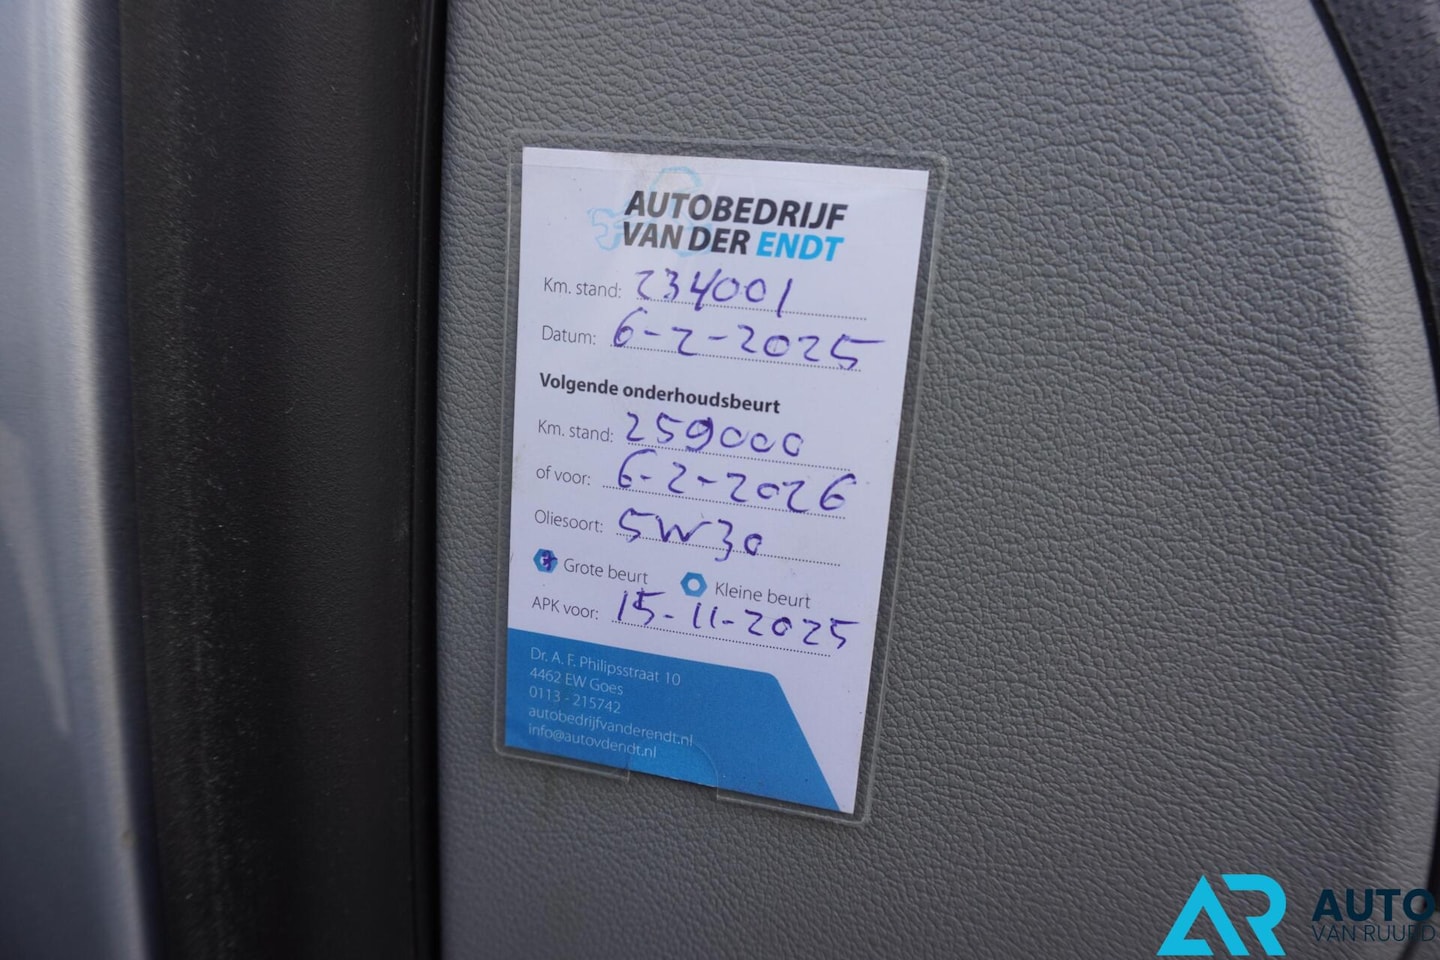 AUTOBEDRIJF
VAN DER ENDT
Km. stand: 234001
Datum: 6-2-2025
Volgende onderhoudsbeurt
Km. stand: 259000
of voor: 6-2-2026
Oliesoort: 5W30
Grote beurt Kleine beurt
APK voor: 15-11-2025
Dr. A. F. Philipsstraat 10
4462 EW Goes
0113 - 215742
autobedrijfvanderendt.nl
info@autovdendt.nl
AR AUTO
VAN RUURD